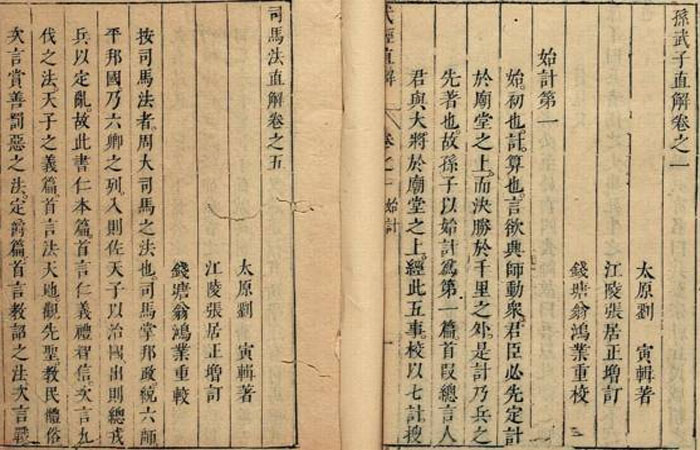 孫武子直解卷之一
太原劉 寅輯著
江陵張居正增訂
錢塘翁鴻業重校
始計第一
始。初也。計。算也。言欲興師動衆。君臣必先定計
於廟堂之上。而決勝於千里之外。是計乃兵之
先著也。故孫子以始計爲第一篇。首段總言人
君與大將於廟堂之上。經此五事。校以七計。搜
武經直解 卷之一 始計
司馬法直解卷之五
太原劉 寅輯著
江陵張居正增訂
錢塘翁鴻業重校
按司馬法者。周大司馬之法也。司馬掌邦政。統六師
平邦國。乃六卿之列。入則佐天子以治國。出則總戎
兵以定亂。故此書仁本篇。首言仁義禮智信。次言九
伐之法。天子之義篇。首言法天地。觀先聖。教民體俗
次言賞善罰惡之法。定爵篇。首言教詔之法。次言戰